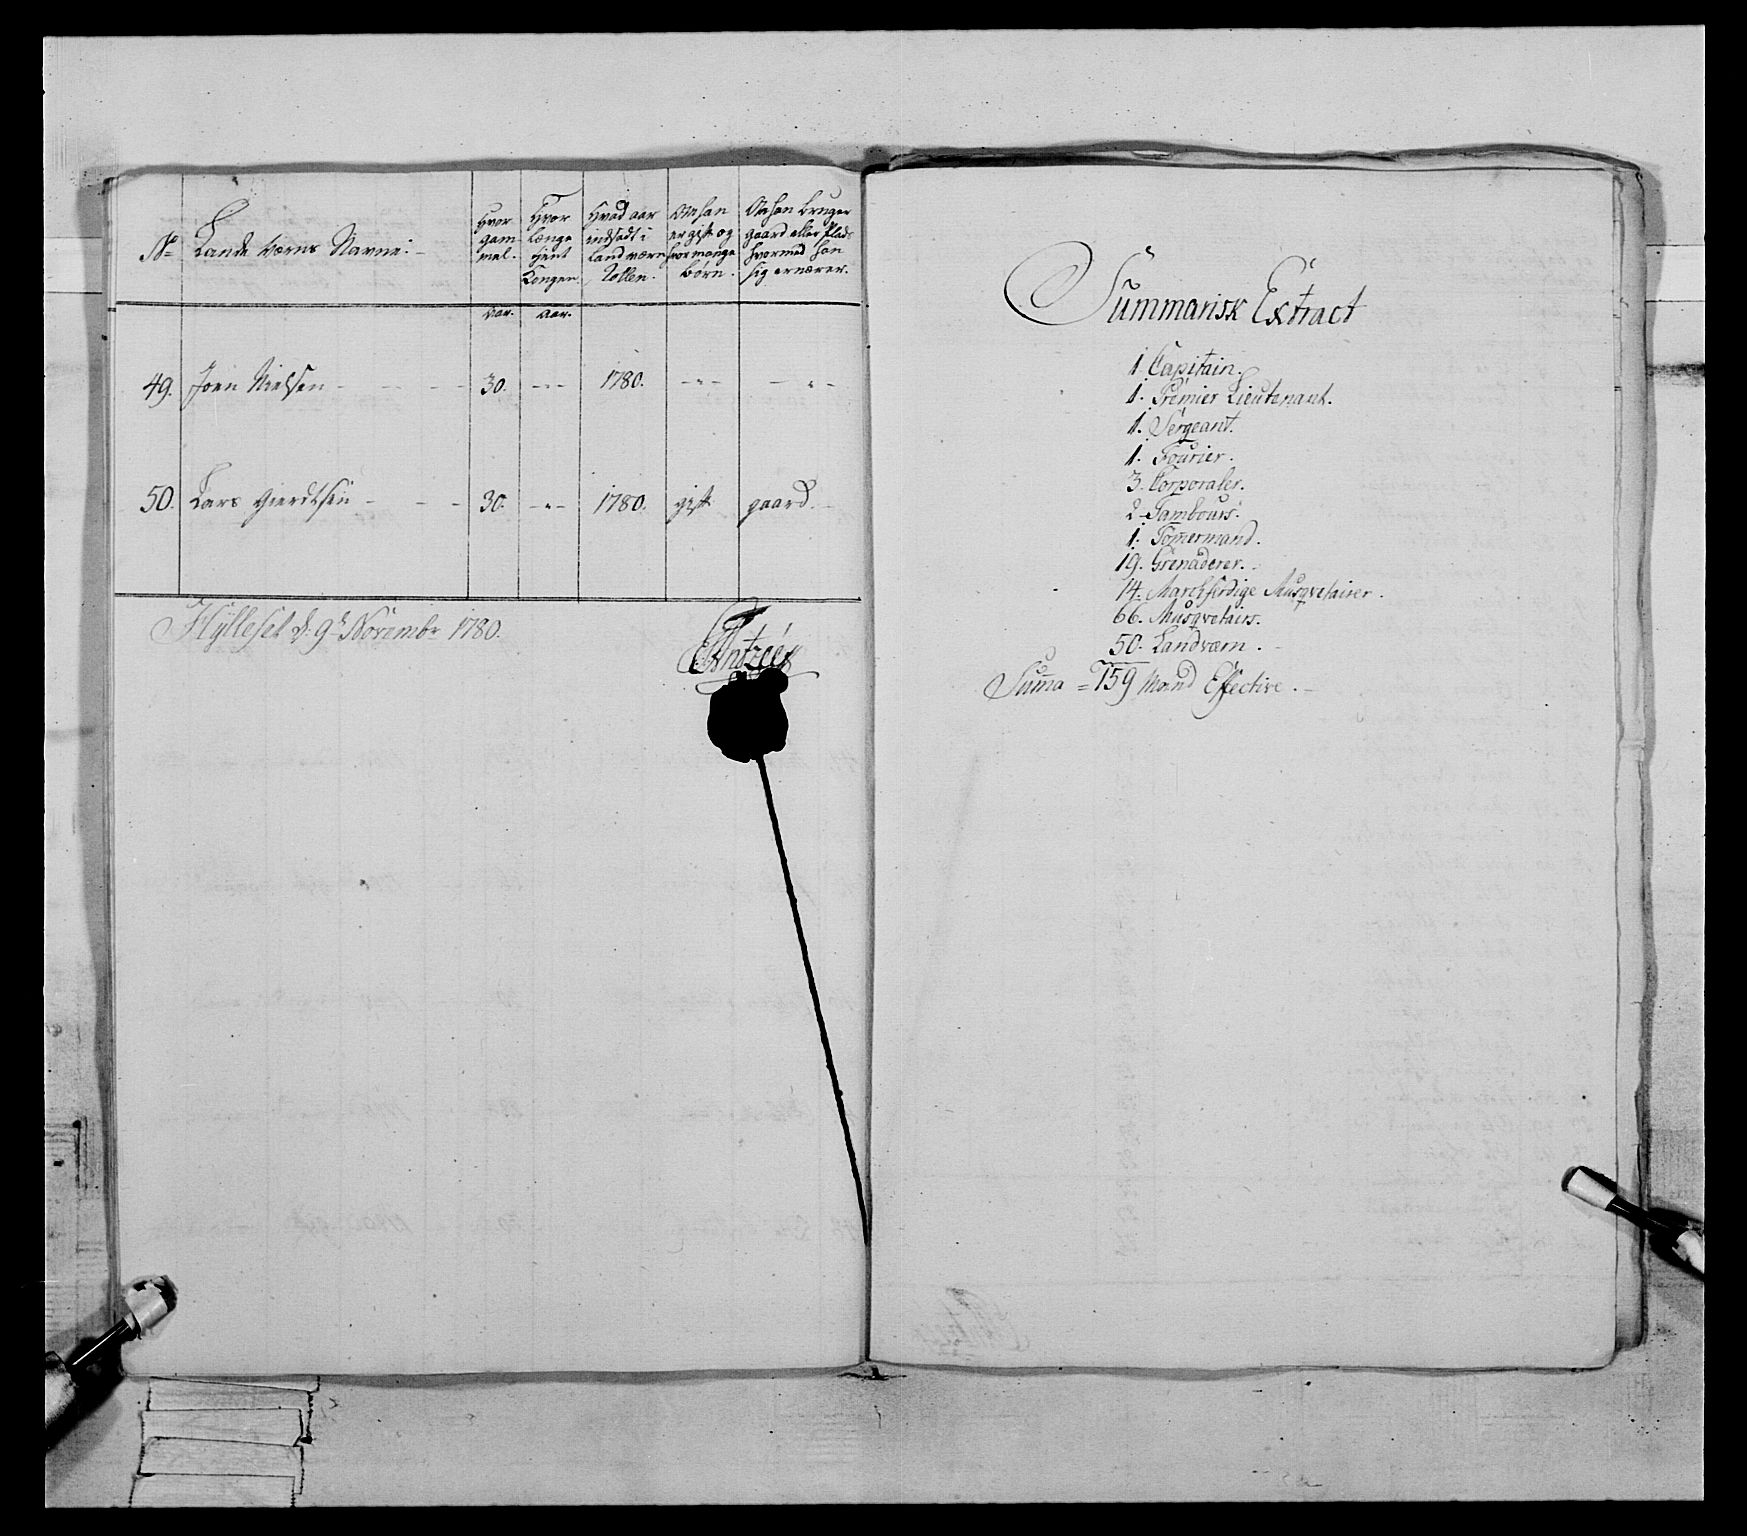 No
Lande Værns Navne.
Hvor gam mel.
Hvor længe tjent Kongen.
Hvad aar indsadt i Land værn Rollen.
Om han er gift og hvor mange børn.
Om han bruger gaard eller Plads hvormed han sig ernærer.
aar. aar.
49. Joen Nielsen - - - 30. - " - 1780. - " - - " -
50. Lars Gierdtsen - - - 30. - " - 1780. gift gaard.
Hyllesel d: 9d Novembr 1780.
Summarisk Extract
1. Capitain.
1. Premier Lieutenant.
1. Sergeant.
1. Fourier.
3. Corporaler.
2. Tambours.
1. Tom̅ermand.
19. Grenaderer.
14. Marchfærdige Musqvetairer.
66. Musqvetairs.
50. Landværn.
Sum̅a = 159 Mand Effective.